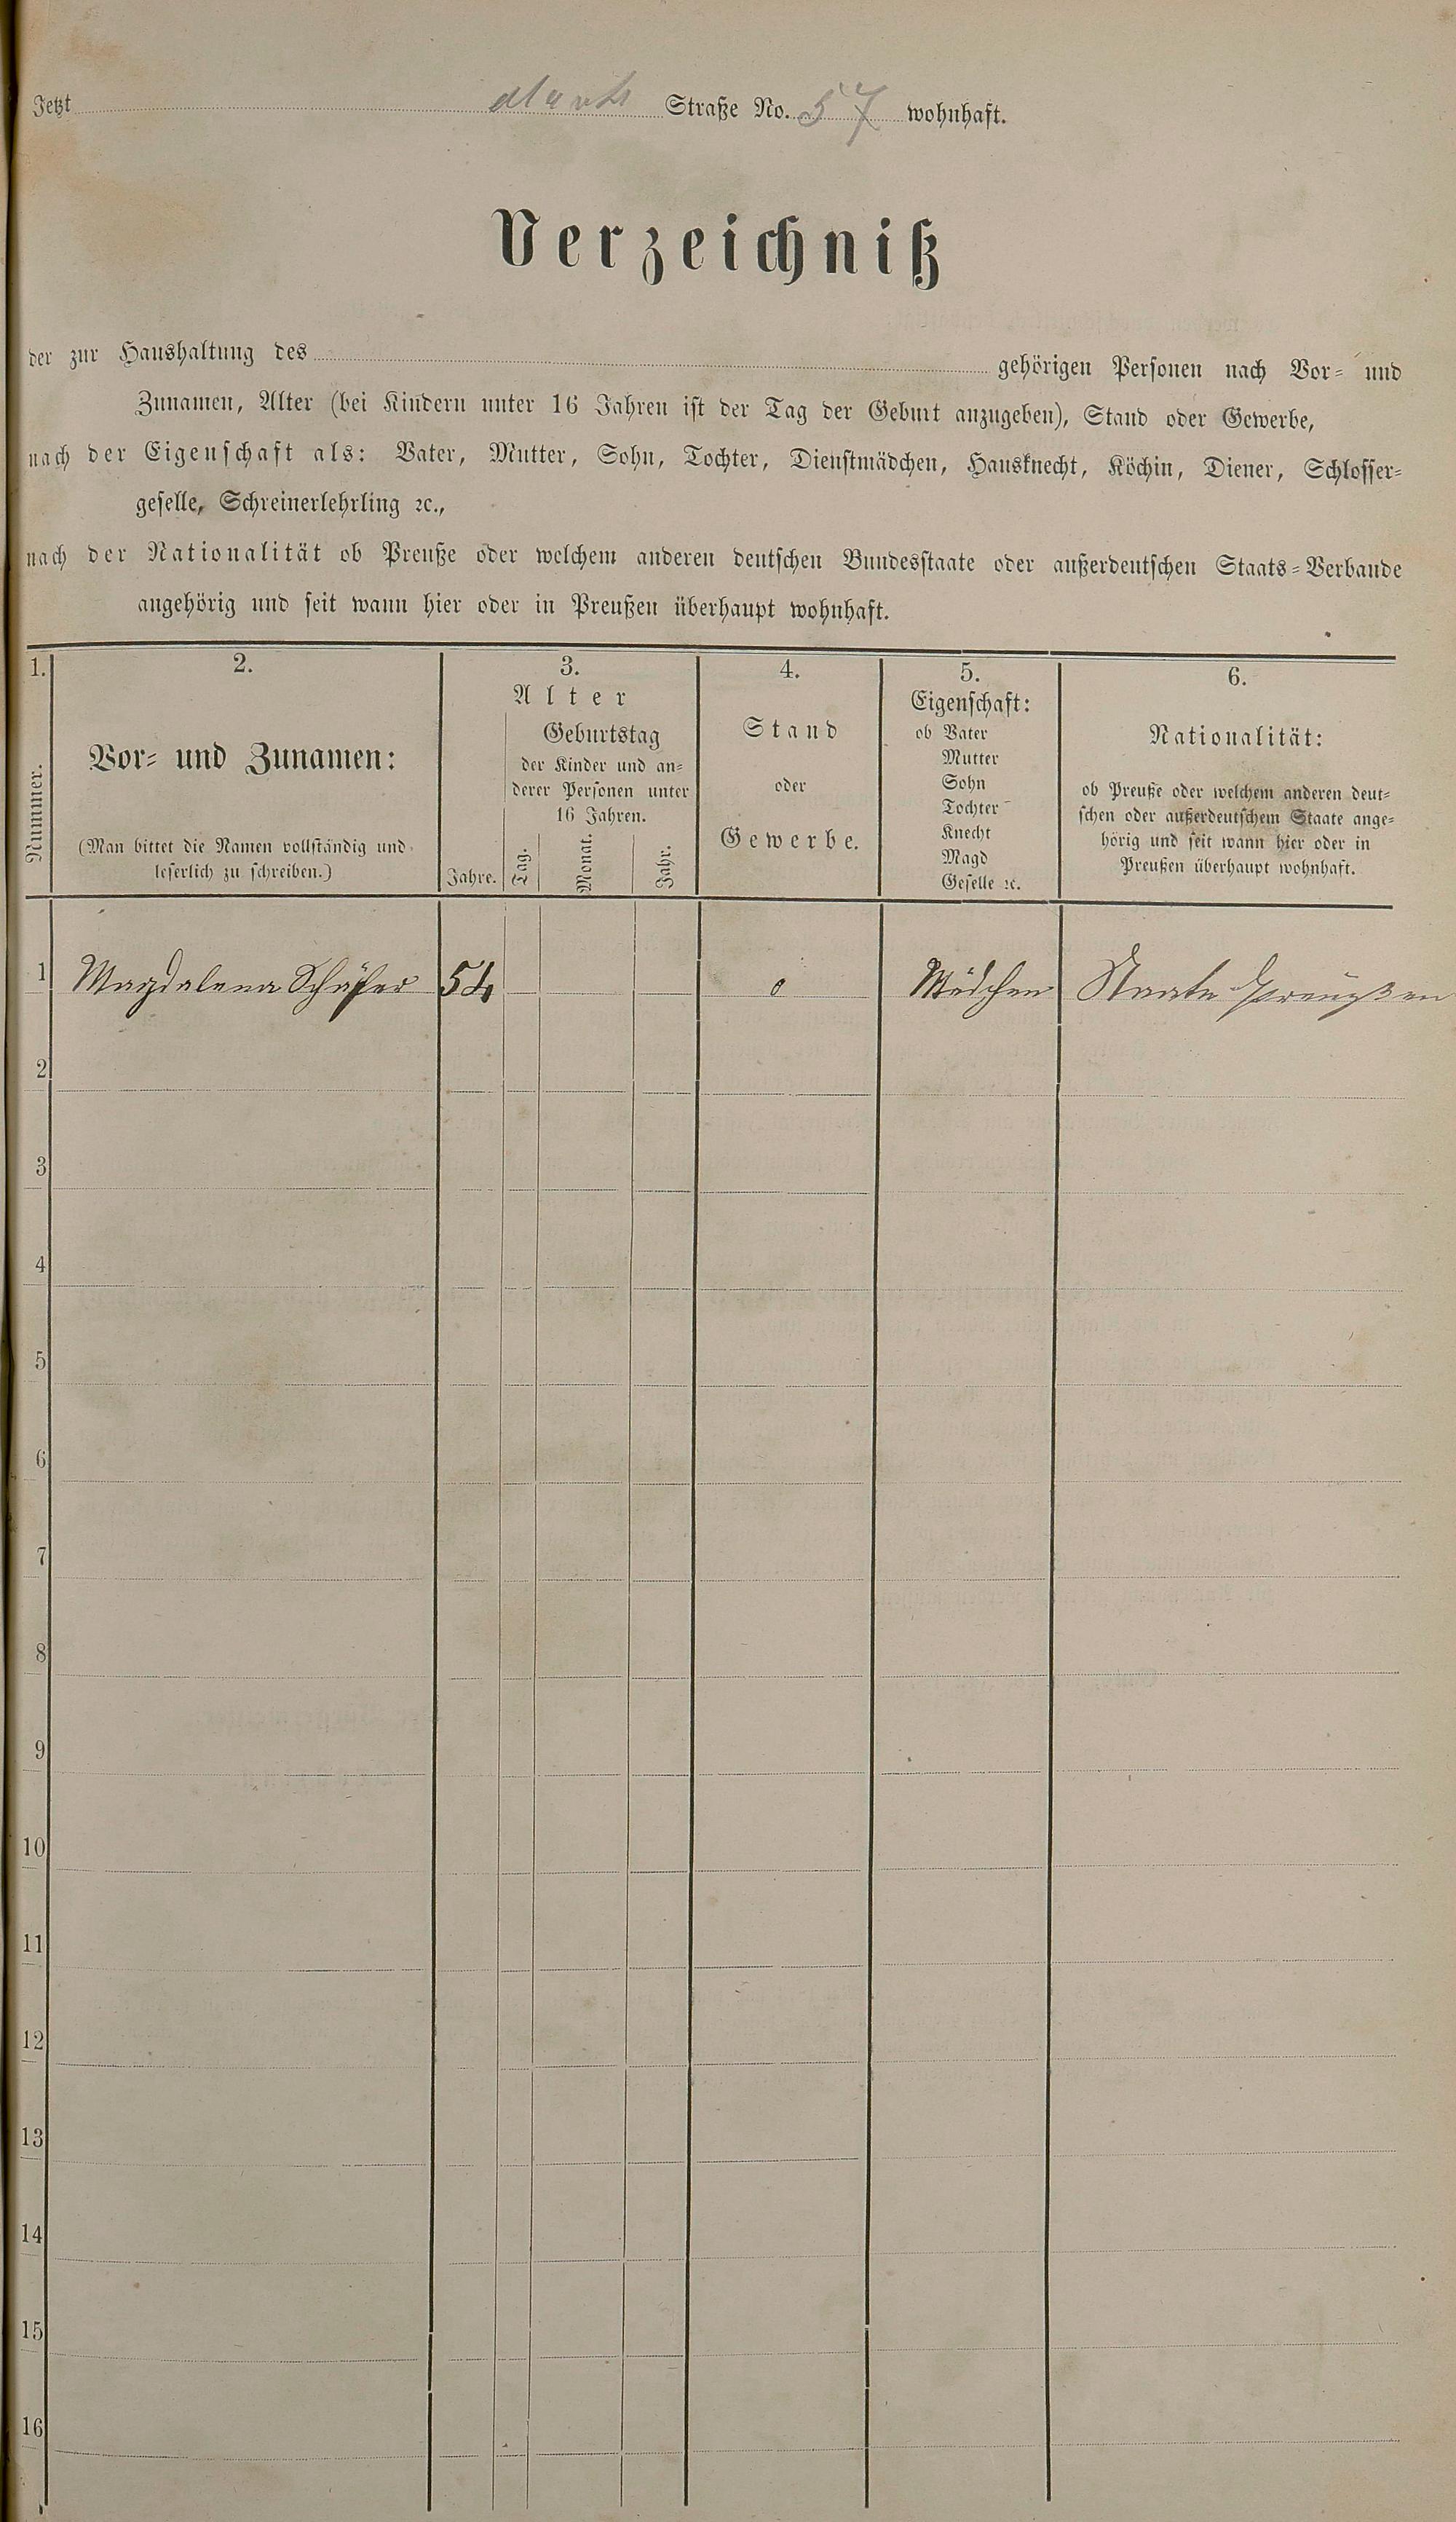 Jetzt Markt Straße No. 57 wohnhaft.
Verzeichniß
der zur Haushaltung des gehörigen Personen nach Vor- und
Zunamen, Alter (bei Kindern unter 16 Jahren ist der Tag der Geburt anzugeben), Stand oder Gewerbe,
nach der Eigenschaft als: Vater, Mutter, Sohn, Tochter, Dienstmädchen, Hausknecht, Köchin, Diener, Schlosser-
geselle, Schreinerlehrling ꝛc.,
nach der Nationalität ob Preuße oder welchem anderen deutschen Bundesstaate oder außerdeutschen Staats-Verbande
angehörig und seit wann hier oder in Preußen überhaupt wohnhaft.
1.
Nummer.
2.
Vor- und Zunamen:
(Man bittet die Namen vollständig und
leserlich zu schreiben.)
3.
Alter
Jahre.
Geburtstag
der Kinder und an-
derer Personen unter
16 Jahren.
Tag.
Monat.
Jahr.
4.
Stand
oder
Gewerbe.
5.
Eigenschaft:
ob Vater
Mutter
Sohn
Tochter
Knecht
Magd
Geselle ꝛc.
6.
Nationalität:
ob Preuße oder welchem anderen deut-
schen oder außerdeutschem Staate ange-
hörig und seit wann hier oder in
Preußen überhaupt wohnhaft.
1 Magdalena Schäfer 54 0 Mädchen Staate Preußen
2
3
4
5
6
7
8
9
10
11
12
13
14
15
16